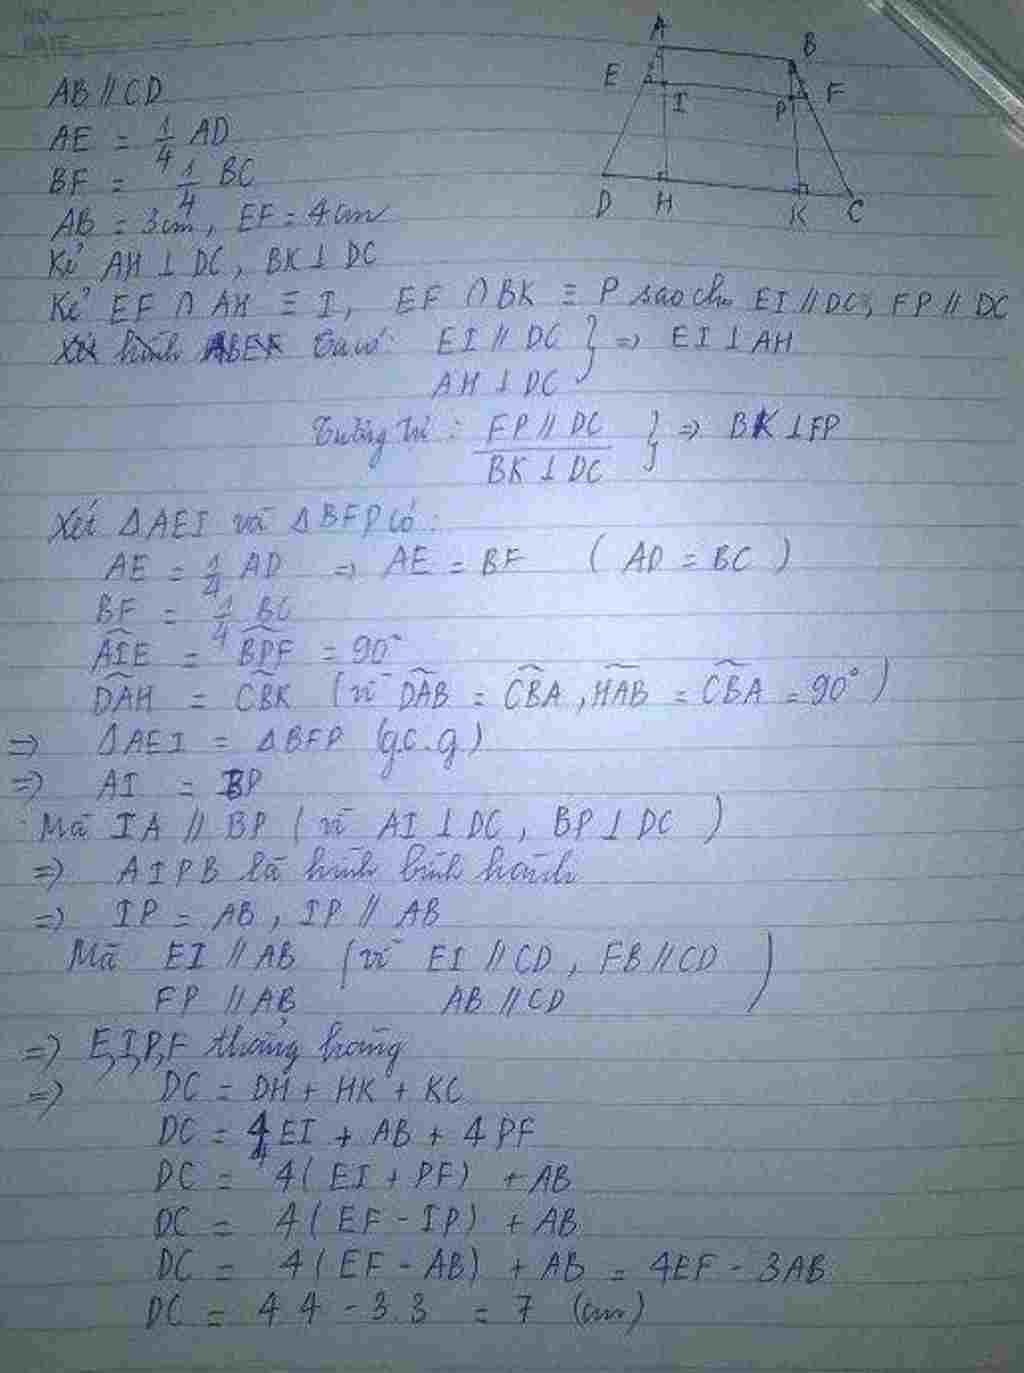 NO.
DATE
A
B
E
I
P
F
D
H
K
C
AB // CD
AE = 1/4 AD
BF = 1/4 BC
AB = 3cm, EF = 4cm
Kẻ AH ⊥ DC, BK ⊥ DC
Kẻ EF ∩ AH ≡ I, EF ∩ BK ≡ P sao cho EI // DC, FP // DC
Ta có: EI // DC } => EI ⊥ AH
AH ⊥ DC
Tương tự: FP // DC } => BK ⊥ FP
BK ⊥ DC
Xét ΔAEI và ΔBFP có:
AE = 1/4 AD => AE = BF (AD = BC)
BF = 1/4 BC
AIE = BPF = 90°
DAH = CBK (vì DAB = CBA, HAB = CBA = 90°)
=> ΔAEI = ΔBFP (g.c.g)
=> AI = BP
Mà IA // BP (vì AI ⊥ DC, BP ⊥ DC)
=> AIPB là hình bình hành
=> IP = AB, IP // AB
Mà EI // AB (vì EI // CD, FB // CD
FP // AB AB // CD )
=> E,I,P,F thẳng hàng
=> DC = DH + HK + KC
DC = 4EI + AB + 4PF
DC = 4(EI + PF) + AB
DC = 4(EF - IP) + AB
DC = 4(EF - AB) + AB = 4EF - 3AB
DC = 4.4 - 3.3 = 7 (cm)